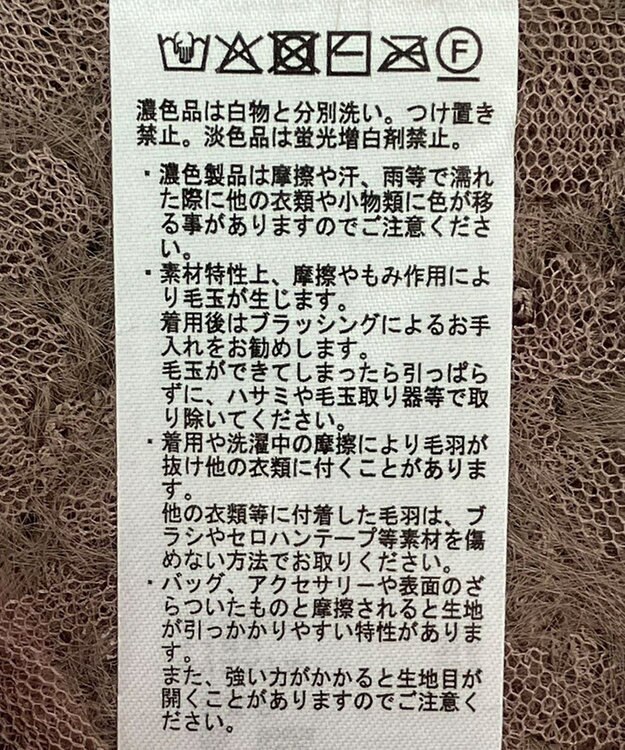 F
濃色品は白物と分別洗い。つけ置き
禁止。淡色品は蛍光増白剤禁止。
・濃色製品は摩擦や汗、雨等で濡れ
た際に他の衣類や小物類に色が移
る事がありますのでご注意くださ
い。
・素材特性上、摩擦やもみ作用によ
り毛玉が生じます。
着用後はブラッシングによるお手
入れをお勧めします。
毛玉ができてしまったら引っぱら
ずに、ハサミや毛玉取り器等で取
り除いてください。
・着用や洗濯中の摩擦により毛羽が
抜け他の衣類に付くことがありま
す。
他の衣類等に付着した毛羽は、ブ
ラシやセロハンテープ等素材を傷
めない方法でお取りください。
・バッグ、アクセサリーや表面のざ
らついたものと摩擦されると生地
が引っかかりやすい特性がありま
す。
また、強い力がかかると生地目が
開くことがありますのでご注意く
ださい。